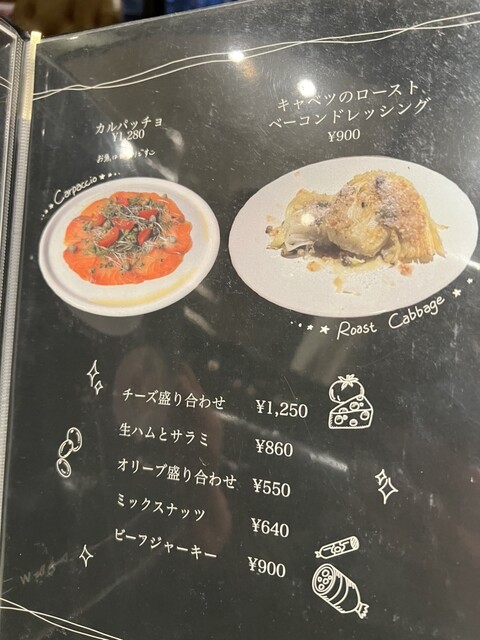 カルパッチョ
¥1,280
Carpaccio
キャベツのロースト
ベーコンドレッシング
¥900
Roast Cabbage
チーズ盛り合わせ ¥1,250
生ハムとサラミ ¥860
オリーブ盛り合わせ ¥550
ミックスナッツ ¥640
ビーフジャーキー ¥900